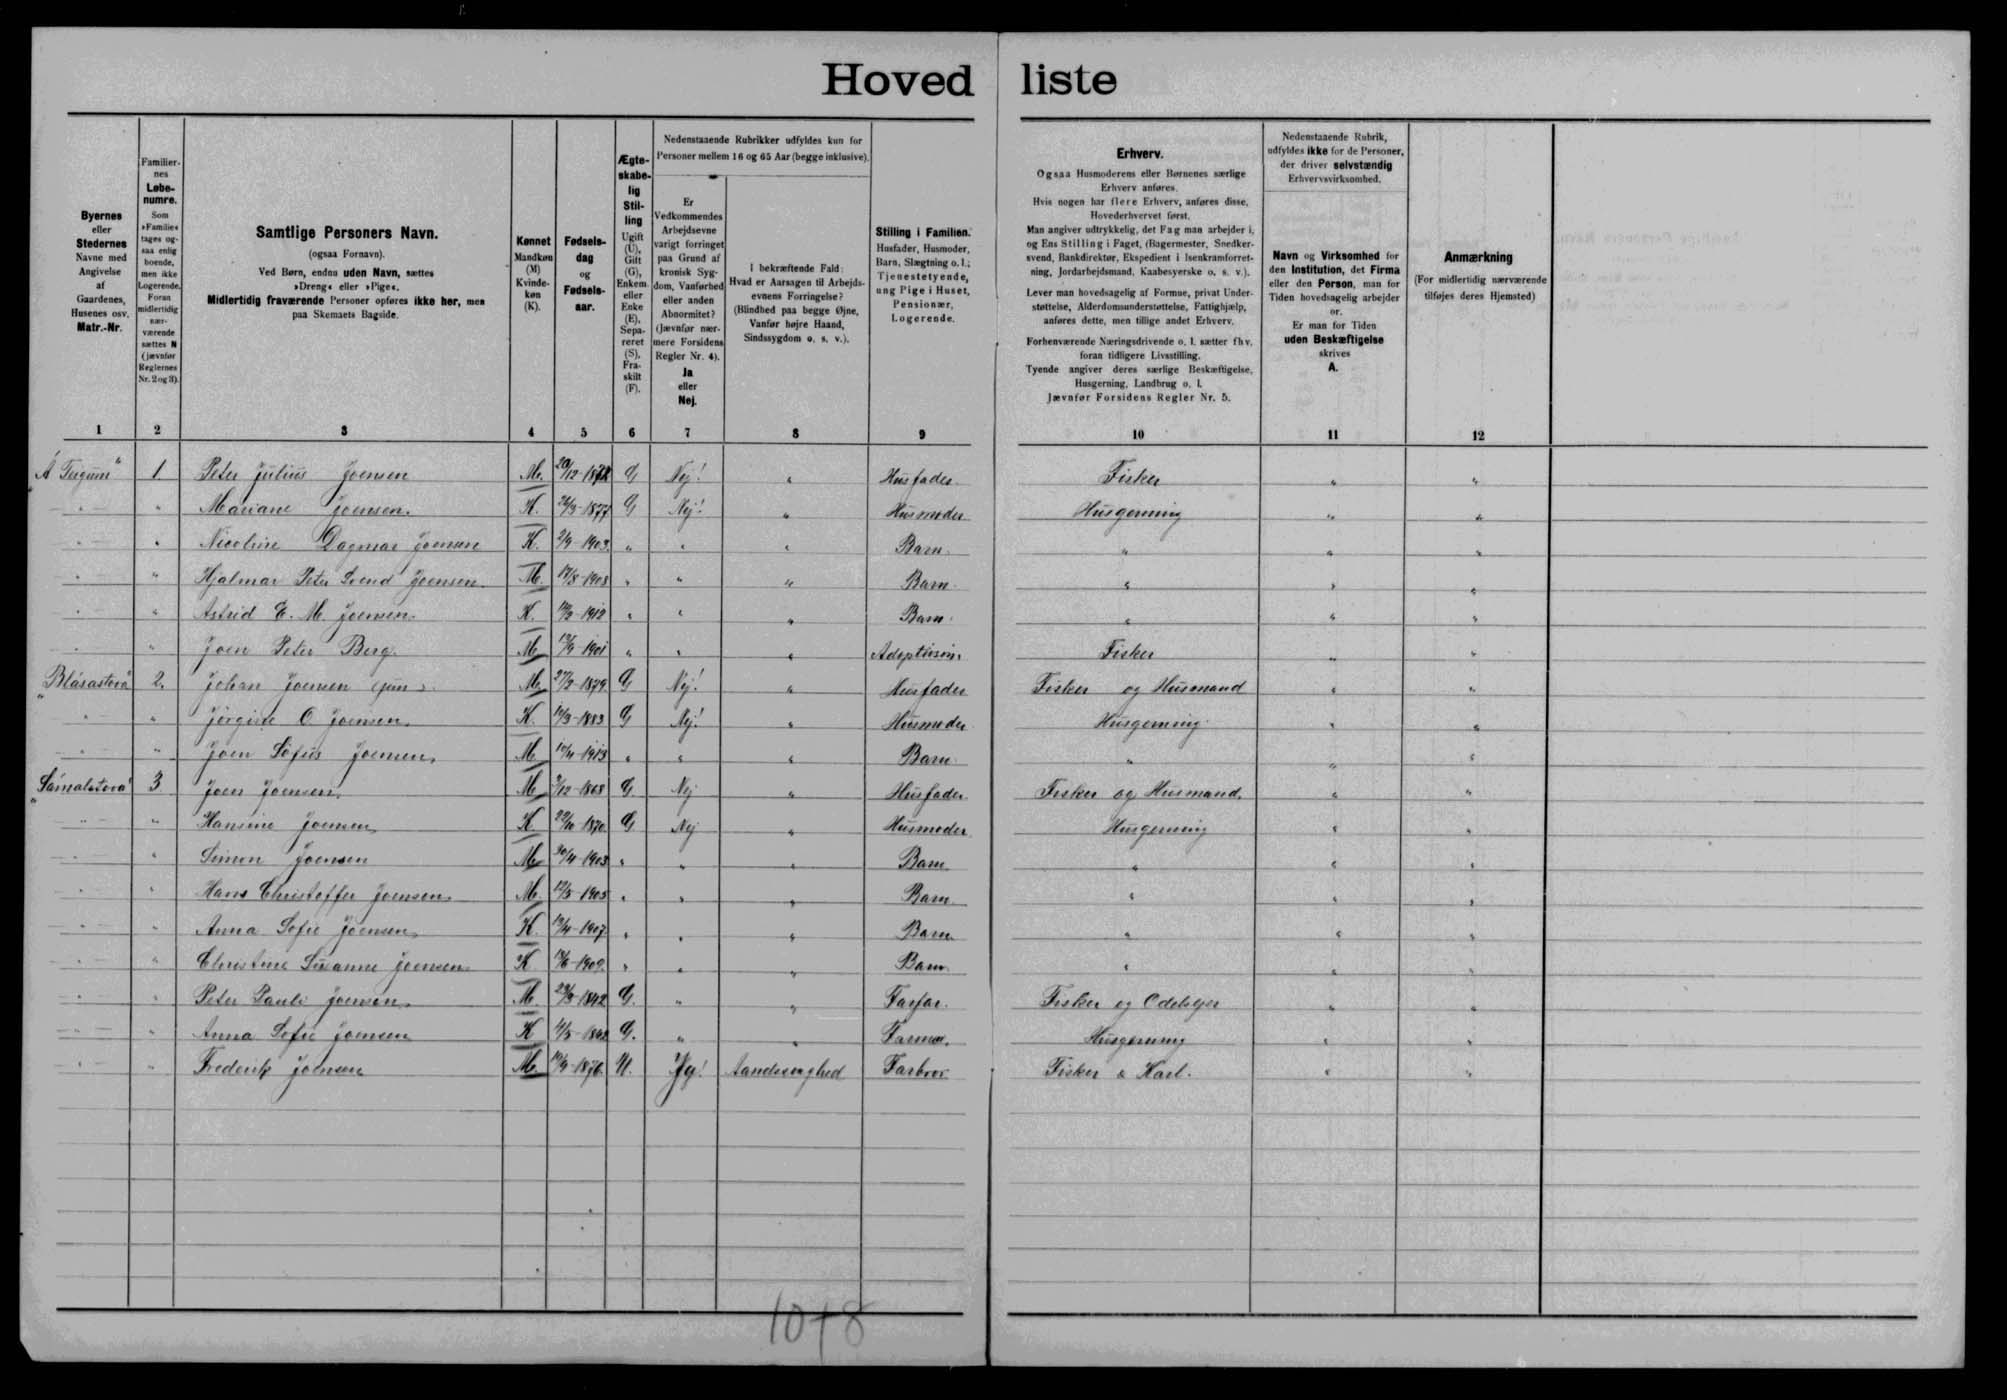 Hoved liste
Byernes
eller
Stedernes
Navne med
Angivelse
af
Gaardenes,
Husenes osv.
Matr.-Nr.
Familier-
nes
Løbe-
numre.
Som
»Familie«
tages og-
saa enlig
boende,
men ikke
Logerende.
Foran
midlertidig
nær-
værende
sættes N
(jævnfør
Reglernes
Nr. 2 og 3).
Samtlige Personers Navn.
(ogsaa Fornavn).
Ved Børn, endnu uden Navn, sættes
»Dreng« eller »Pige«.
Midlertidig fraværende Personer opføres ikke her, men
paa Skemaets Bagside.
Kønnet
Mandkøn
(M)
Kvinde-
køn
(K).
Fødsels-
dag
og
Fødsels-
aar.
Ægte-
skabe-
lig
Stil-
ling
Ugift
(U),
Gift
(G),
Enkem.
eller
Enke
(E),
Sepa-
reret
(S),
Fra-
skilt
(F).
Nedenstaaende Rubrikker udfyldes kun for
Personer mellem 16 og 65 Aar (begge inklusive).
Er
Vedkommendes
Arbejdsevne
varigt forringet
paa Grund af
kronisk Syg-
dom, Vanførhed
eller anden
Abnormitet?
(Jævnfør nær-
mere Forsidens
Regler Nr. 4).
Ja
eller
Nej.
I bekræftende Fald:
Hvad er Aarsagen til Arbejds-
evnens Forringelse?
(Blindhed paa begge Øjne,
Vanfør højre Haand,
Sindssygdom o. s. v.).
Stilling i Familien.
Husfader, Husmoder,
Barn, Slægtning o. l.;
Tjenestetyende,
ung Pige i Huset,
Pensionær,
Logerende.
Erhverv.
Ogsaa Husmoderens eller Børnenes særlige
Erhverv anføres.
Hvis nogen har flere Erhverv, anføres disse,
Hovederhvervet først.
Man angiver udtrykkelig, det Fag man arbejder i,
og Ens Stilling i Faget, (Bagermester, Snedker-
svend, Bankdirektør, Ekspedient i Isenkramforret-
ning, Jordarbejdsmand, Kaabesyerske o. s. v.).
Lever man hovedsagelig af Formue, privat Under-
støttelse, Alderdomsunderstøttelse, Fattighjælp,
anføres dette, men tillige andet Erhverv.
Forhenværende Næringsdrivende o. l. sætter fhv.
foran tidligere Livsstilling.
Tyende angiver deres særlige Beskæftigelse,
Husgerning, Landbrug o. l.
Jævnfør Forsidens Regler Nr. 5.
Nedenstaaende Rubrik,
udfyldes ikke for de Personer,
der driver selvstændig
Erhvervsvirksomhed.
Navn og Virksomhed for
den Institution, det Firma
eller den Person, man for
Tiden hovedsagelig arbejder
or.
Er man for Tiden
uden Beskæftigelse
skrives
A.
Anmærkning
(For midlertidig nærværende
tilføjes deres Hjemsted)
1 2 3 4 5 6 7 8 9 10 11 12
"Á Teigum" 1. Peter Julius Joensen M. 20/12-1872 G Nej! " Husfader Fisker " "
" " Mariane Joensen. K. 26/3-1877 G Nej! " Husmoder Husgerning " "
" " Nicoline Dagmar Joensen K. 2/9-1903. " " " Barn. " " "
" " Hjalmar Peter Svend Joensen. M. 17/8-1908 " " " Barn. " " "
" " Astrid E. M. Joensen. K. 1912 " " " Barn. " " "
" " Joen Peter Berg. M. 1901 " " " Adoptivsøn. Fisker " "
"Blásastova" 2. Johan Joensen jun. M. 27/2-1879. G Nej! " Husfader Fisker og Husmand " "
" " O. Joensen. K. 1883 G Nej! " Husmoder Husgerning. " "
" " Joen Sofus Joensen. M. 1913 " " " Barn. " " "
"Sámalstova" 3. Joen Joensen. M. 1868 G. Nej " Husfader Fisker og Husmand. " "
" " Hansine Joensen. K. 29/10-1870. G Nej " Husmoder Husgerning " "
" " Simon Joensen M. 1903 " " " Barn " " "
" " Hans Christoffer Joensen. M. 12/5-1905 " " " Barn " " "
" " Anna Sofie Joensen. K. 1907. " " " Barn " " "
" " Christine Susanne Joensen. K. 1909. " " " Barn. " " "
" " Peter Pauli Joensen. M. 1842 G. " " Farfar. Fisker og Odelsejer " "
" " Anna Sofie Joensen K 4/5-1842 G. " " Farmor. Husgerning " "
" " Frederik Joensen M. 1876. U. Ja! Aandssvaghed Farbror Fisker & Karl. " "
1048